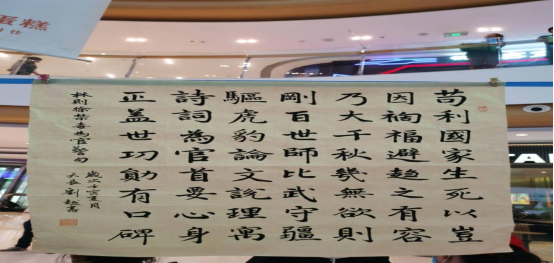 苟利國家生死以豈
因禍福避趨之有容
乃大千秋幾無欲則
剛百世師比武守疆
驅虎豹論文說理寓
詩詞為官首要心身
正蓋世功勛有口碑
林則徐禁毒為官警句
歲次壬寅夏月
劉越書
蛋糕